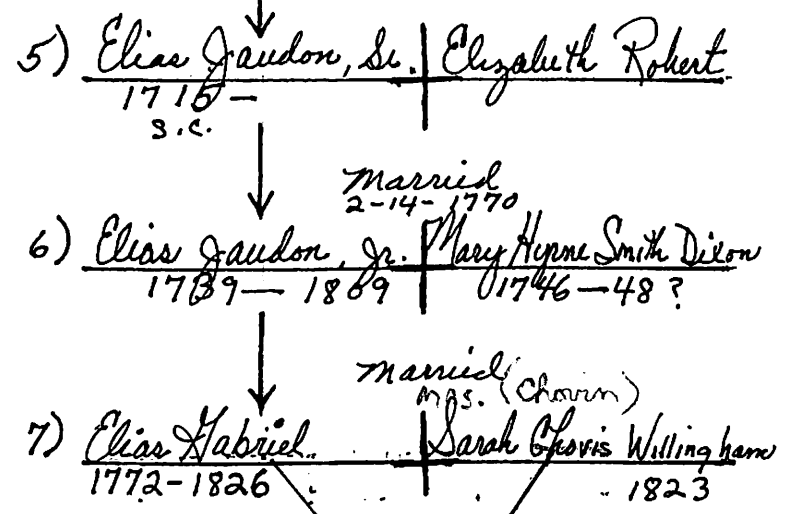 5) Elias Jaudon, Sr. Elizabeth Robert
1715 —
S.C.
Married
2-14-1770
6) Elias Jaudon, Jr. Mary Hyrne Smith Dixon
1739 — 1809 1746 — 48 ?
Married
Mrs. (Chovin)
7) Elias Gabriel Sarah Chovis Willingham
1772-1826 1823